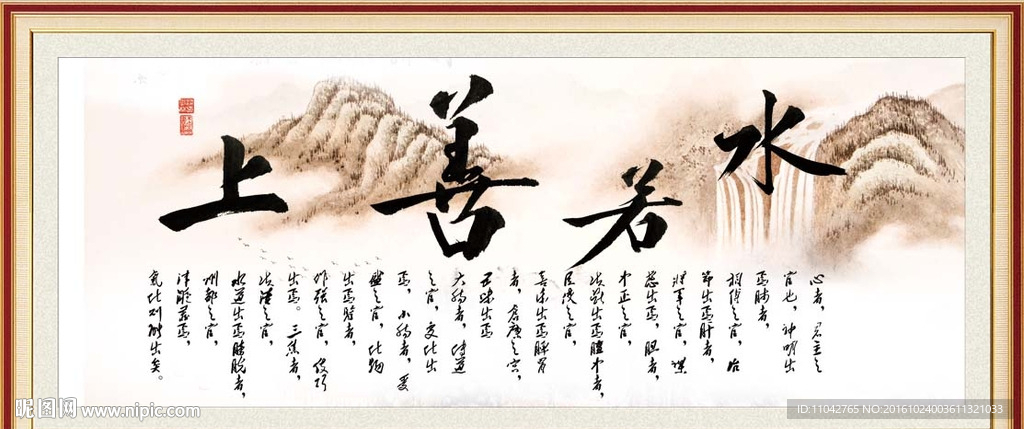 上善若水
心者，君主之
官也，神明出
焉肺者，
相傅之官，治
节出焉肝者，
将军之官，谋
虑出焉，胆者，
中正之官，
决断出焉膻中者，
臣使之官，
喜乐出焉脾胃
者，仓廪之官，
五味出焉
大肠者，传道
之官，变化出
焉，小肠者，受
盛之官，化物
出焉肾者，
作强之官，伎巧
出焉。三焦者，
决渎之官，
水道出焉膀胱者，
州都之官，
津液藏焉，
气化则能出矣。
昵图网 www.nipic.com
ID:11042765 NO:20161024003611321033